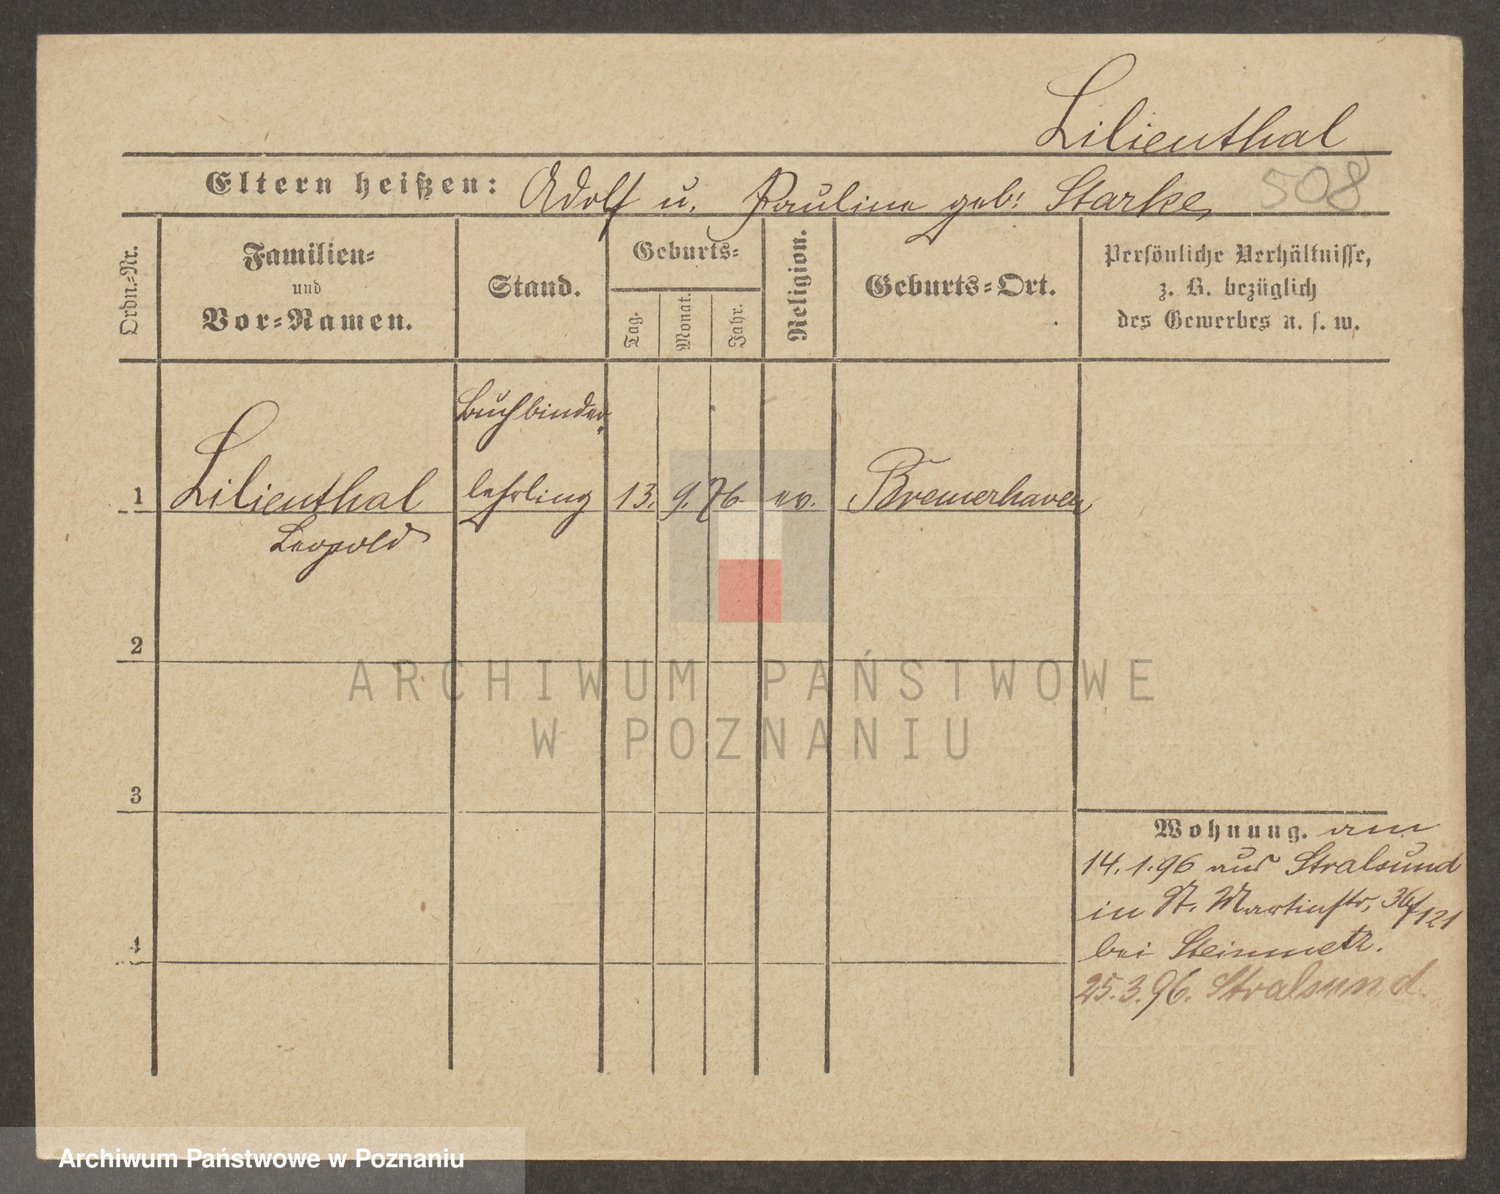 Lilienthal
Eltern heißen: Adolf u. Pauline geb: Starke,
508
Ordn.-Nr.
Familien-
und
Vor-Namen.
Stand.
Geburts-
Tag.
Monat.
Jahr.
Religion.
Geburts-Ort.
Persönliche Verhältnisse,
z. B. bezüglich
des Gewerbes u. s. w.
Buchbinder-
1 Lilienthal lehrling 13. 9. 76 ev. Bremerhaven
Leopold
2
3
4
Wohnung. am
14.1.96 aus Stralsund
in St. Martinstr, 36/121
bei Steinmetz.
25.3.96. Stralsund.
ARCHIWUM PAŃSTWOWE
W POZNANIU
Archiwum Państwowe w Poznaniu